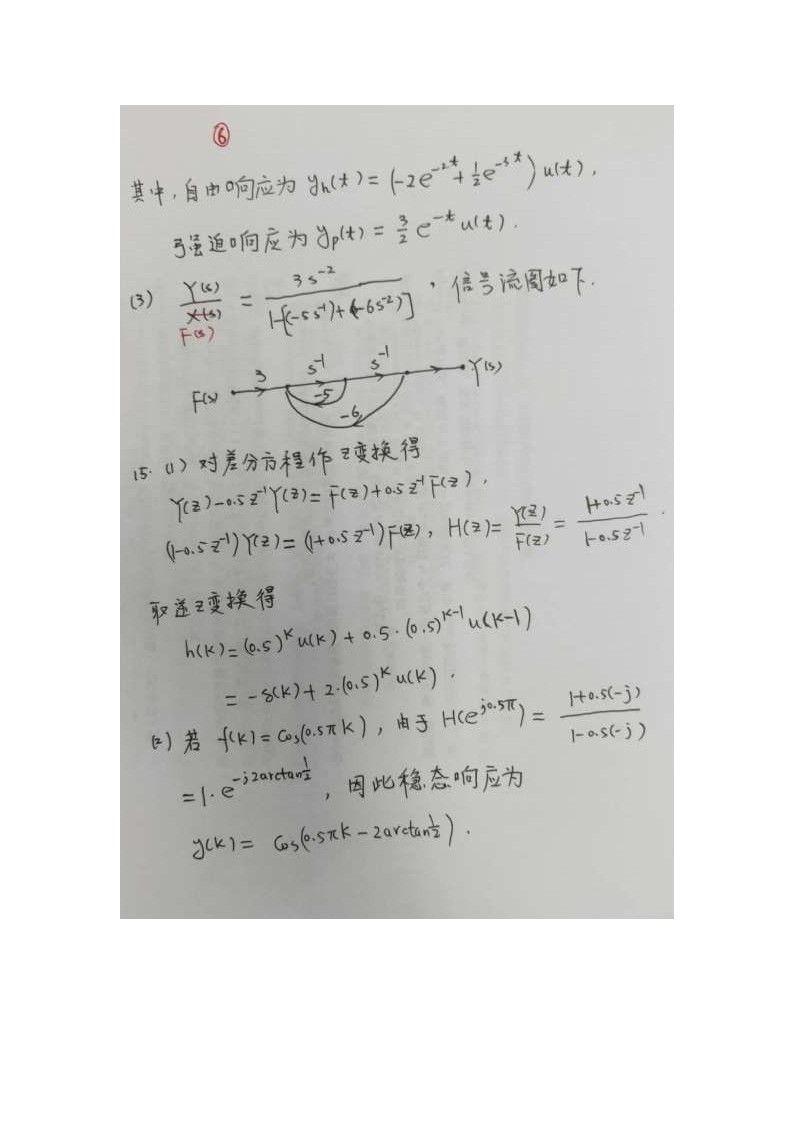 ⑥
其中,自由响应为 yₕ(t) = (-2e^{-2t} + ½e^{-3t}) u(t),
强迫响应为 yₚ(t) = 3/2 e^{-t} u(t).
(3) Y(s)/F(s) = 3s^{-2} / 1-[(-5s^{-1})+(-6s^{-2})] , 信号流图如下.
F(s) 3 s^{-1} s^{-1} Y(s)
-5
-6
15. (1) 对差分方程作z变换得
Y(z)-0.5z^{-1}Y(z) = F(z)+0.5z^{-1}F(z),
(1-0.5z^{-1})Y(z) = (1+0.5z^{-1})F(z), H(z) = Y(z)/F(z) = 1+0.5z^{-1} / 1-0.5z^{-1} .
取逆z变换得
h(k) = (0.5)^k u(k) + 0.5·(0.5)^{k-1} u(k-1)
= -δ(k) + 2·(0.5)^k u(k).
(2) 若 f(k) = cos(0.5πk), 由于 H(e^{j0.5π}) = 1+0.5(-j) / 1-0.5(-j)
= 1·e^{-j2arctan½}, 因此稳态响应为
y(k) = cos(0.5πk - 2arctan½).